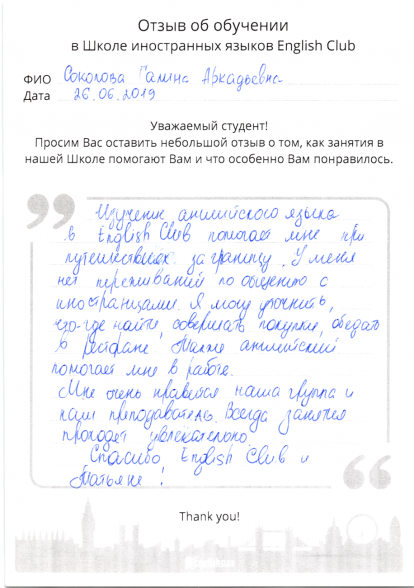 Отзыв об обучении
в Школе иностранных языков English Club
ФИО Соколова Галина Аркадьевна
Дата 26.06.2019
Уважаемый студент!
Просим Вас оставить небольшой отзыв о том, как занятия в
нашей Школе помогают Вам и что особенно Вам понравилось.
Изучение английского языка
в English Club помогает мне при
путешествиях за границу. У меня
нет переживаний по общению с
иностранцами. Я могу уточнить,
что-где найти, совершать покупки, обедать
в ресторане. Также английский
помогает мне в работе.
Мне очень нравится наша группа и
наш преподаватель. Всегда занятия
проходят увлекательно.
Спасибо English Club и
Татьяне!
Thank you!